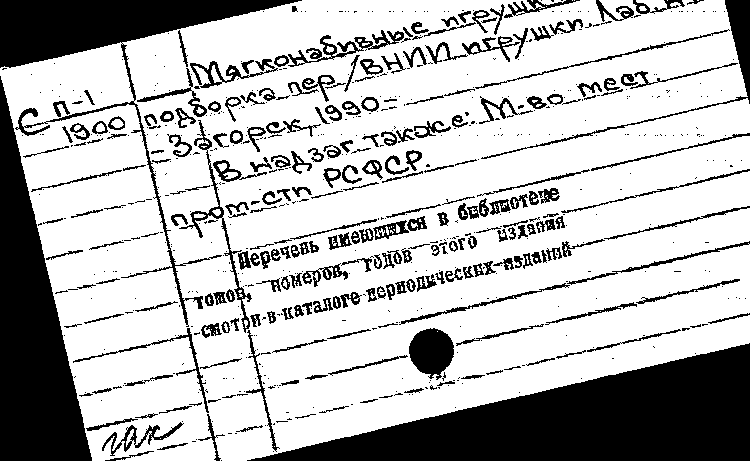 Мягконабивные игрушк
С П-1
1900
подборка пер/ВНИИ игрушки. Лаб.
-Загорск, 1990-
В надзаг. также: М-во мест.
пром-сти РСФСР.
Перечень имеющихся в библиотеке
томов, номеров, годов этого издания
смотри в каталоге периодических изданий